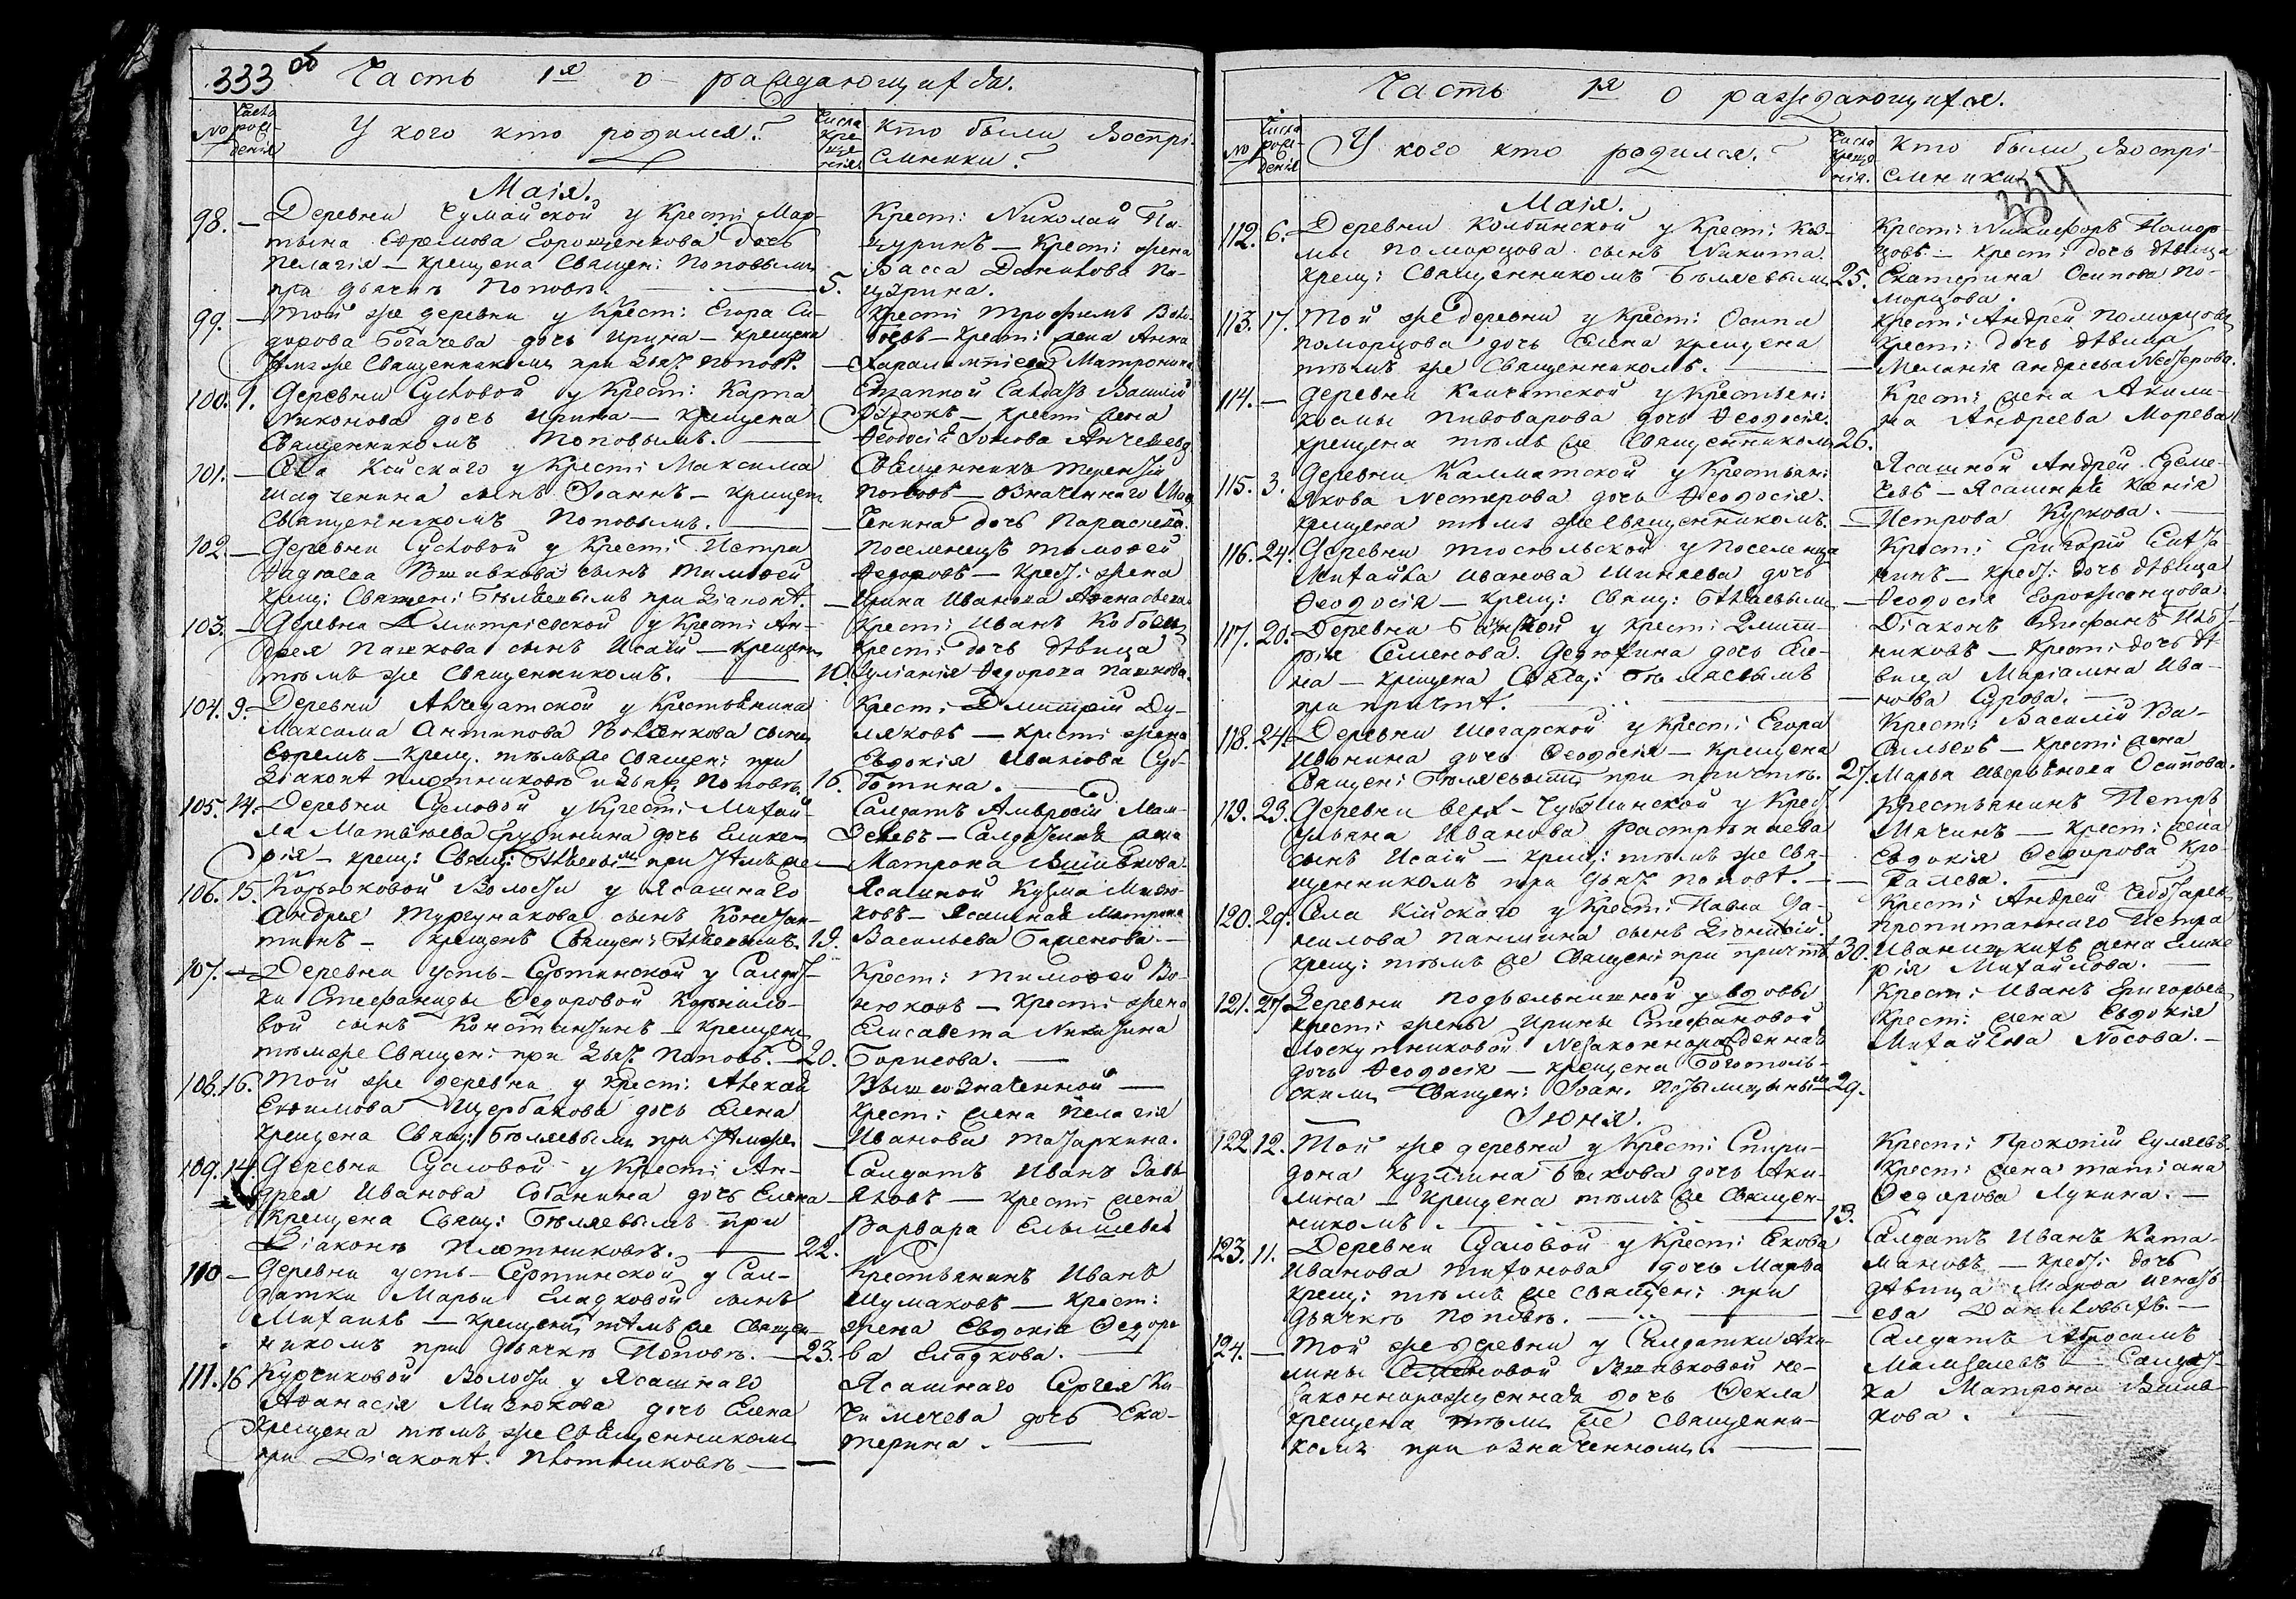 333 об Часть 1я о раждающихся.
№
Числа рождения
У кого кто родился?
Числа крещения
Кто были Воспріемники?
Маія.
98. — Деревни Чумайской у Крест: Мар-
тына Ефремова Ворошенкова дочь
Пелагія — крещена Священ: Поповымъ
при дьячкѣ Поповѣ. — 5.
Крест: Николай
— Крест: жена
Васса Данилова
99. — Той же деревни у Крест: Егора Си-
дорова Богачева дочь Ирина — крещена
Тѣмъ же Священникомъ при Дьяч. Поповѣ. —
Крест: Трофимъ
— Крест: жена Анна
100. 1. Деревни Сусловой у Крест: Карпа
Никонова дочь Ирина — крещена
Священникомъ Поповымъ. —
Етапной Салдатъ Василій
— Крест: жена
Ѳеодосія
101. — Села Кійскаго у Крест: Максима
Шадченина сынъ Іоаннъ — крещенъ
Священникомъ Поповымъ. —
Священникъ Терентій
Поповъ — Означеннаго Шад
ченина дочь Параскева.
102. — Деревни Сусловой у Крест: Петра
Ѳадѣева Вшивкова сынъ Тимоѳей
крещ: Священ: Бѣляевымъ при Діаконѣ. —
Поселенецъ Тимоѳей
Ѳедоровъ — Крест: жена
Ирина Иванова Аѳанасьева
103. — Деревни Дмитріевской у Крест: Ан-
дрея Пашкова сынъ Исаій — крещенъ
тѣмъ же Священникомъ. — 10.
Крест: Иванъ
Крест: дочь дѣвица
Іуліанія Ѳедорова Пашкова.
104. 9. Деревни Алчедатской у Крестьянина
Максима Антипова Воленкова сынъ
Ефремъ — крещ. тѣмъ же Священ: при
Діаконѣ Плотниковѣ и Дьяч. Поповѣ. 16.
Крест: Дмитрій Ду-
ляковъ — Крест: жена
Евдокія Иванова Суб-
ботина. —
105. 14. Деревни Сусловой у Крест: Михай-
ла Матвѣева Грудинина дочь Глике-
рія — крещ: Свящ: Бѣляевымъ при Тѣмъ же —
Салдатъ Амвросій Мам-
— Салдатская жена
Матрона Вшивкова
106. 15. Волости у Ясашнаго
Андрея Тургунакова сынъ Констан-
тинъ — крещенъ Священ: Бѣляевымъ. 19.
Ясашной Кузма
ковъ — Ясашная Матрона
Васильева
107. — Деревни Усть-Сертинской у Салдат-
ки Стефаниды Ѳедоровой Корнило-
вой сынъ Константинъ — крещенъ
тѣмже Священ: при Дьяч. Поповѣ. — 20.
Крест: Тимоѳей Во-
нюковъ — Крест: жена
Елисавета Никитина
Борисова. —
108. 16. Той же деревни у Крест: Алексѣй
Евѳимова Щербакова дочь Елена
крещена Свящ: Бѣляевымъ при Тѣмже —
Вышеозначенной —
Крест: жена Пелагія
Иванова Татаркина.
109. 14. Деревни Сусловой у Крест: Ан-
дрея Иванова Собанина дочь Елена —
крещена Свящ: Бѣляевымъ при
Діаконѣ Плотниковѣ. — 22.
Салдатъ Иванъ Завь-
яловъ — Крест: жена
Варвара
110 — Деревни Усть-Сертинской у Сал-
датки Марьи Гладковой сынъ
Михаилъ — крещенъ тѣмъ же Священ-
никомъ при Дьячкѣ Поповѣ. — 23.
Крестьянинъ Иванъ
Шумаковъ — Крест:
жена Евдокія Ѳедоро
ва Гладкова. —
111. 16 Курчиковой Волости у Ясашнаго
Аѳанасія Мизюкова дочь Елена
крещена тѣмъ же Священникомъ
при Діаконѣ Плотниковѣ — —
Ясашнаго Сергея Ки-
чимечева дочь Ека-
терина. —
Часть 1я о раждающихся.
№
Числа рождения
У кого кто родился?
Числа крещения.
Кто были Воспрі-
емники
334
Маія.
112. 6. Деревни Колбинской у Крест: Коз-
мы Поморцова сынъ Никита
крещ: Священникомъ Бѣляевымъ 25.
Крест: Никифоръ Помор-
цовъ — Крест: дочь дѣвица
Екатерина Осипова По-
морцова.
113. 17. Той же деревни у Крест: Осипа
Поморцова дочь Елена крещена
тѣмъ же Священникомъ. —
Крест: Андрей Поморцовъ
Крест: дочь дѣвица
Меланія Андреева Нестерова.
114. — Деревни Камчатской у Крестьян:
Козмы Пивоварова дочь Ѳеодосія.
крещена тѣмъ же Священникомъ 26.
Крест: жена Акили-
на Андреева Морева
115. 3. Деревни Калматской у Крестьян:
Якова Нестерова дочь Ѳеодосія.
крещена тѣмъ же Священникомъ. —
Ясашной Андрей
— Ясашная Ксенія
Петрова Куркова.
116. 24. Деревни Тюстюльской у Поселенца
Михайла Иванова Минѣева дочь
Ѳеодосія — крещ: Свящ: Бѣляевымъ —
Крест: Григорій
— Крест: дочь дѣвица
Ѳеодосія
117. 20. Деревни у Крест: Дмит-
рія Семенова Дедюхина дочь Еле-
на — крещена Свящ: Бѣляевымъ
при причтѣ. —
Діаконъ Стефанъ Плот-
никовъ — Крест: дочь дѣ-
вица Маріамна Ива-
нова Сурова. —
118. 24. Деревни Шегарской у Крест: Егора
Ивонина дочь Ѳеодосія — крещена
Священ: Бѣляевымъ при причтѣ. 27.
Крест: Василій Ва-
сильевъ — Крест: жена
Марья Аверьянова Осипова.
119. 23. Деревни Верх-Чубулинской у Крест.
Ульяна Иванова Растрѣпаева
сынъ Исаій — крещ: тѣмъ же Свя-
щенникомъ при Дьяч. Поповѣ. —
Крестьянинъ Петръ
Мачинъ — Крест: жена
Евдокія Ѳедорова Кро-
палева. —
120. 29. Села Кійскаго у Крест: Павла Да-
нилова Паншина сынъ Діонисій.
крещ: тѣмъ же Священ: при причтѣ 30.
Крест: Андрей Чеботаревъ
пропитаннаго Петра
жена Глике
рія Михайлова. —
121. 27 Деревни Подъельнишной у вдовы
Крест: жены Ирины Стефановой
Лоскутниковой Незаконнорожденная
дочь Ѳеодосія — крещена Боготоль-
скимъ Священ: Іоан. 29.
Крест: Иванъ Григорьевъ
Крест: жена Евдокія
Михайлова Носова. —
Іюнія.
122 12. Той же деревни у Крест: Спири-
дона Кузмина Быкова дочь Аки-
лина — крещена тѣмъ же Священ-
никомъ. — 13.
Крест: Прокопій Гуляевъ
Крест: жена Татіана
Ѳедорова Лукина. —
123. 11. Деревни Сусловой у Крест: Якова
Иванова Тихонова дочь Марѳа
крещ: тѣмъ же Священ: при
Дьячкѣ Поповѣ. —
Салдатъ Иванъ Ката-
мановъ — Крест: дочь
дѣвица Марѳа Игнать-
ева Даниловыхъ. —
124. — Той же деревни у Салдатки Аки-
лины Семеновой Вшивковой не-
законнорожденная дочь Ѳекла
крещена тѣмъ же Священни-
комъ при означенномъ. —
Салдатъ Абросимъ
— Салдат-
ка Матрона Вшив-
кова.